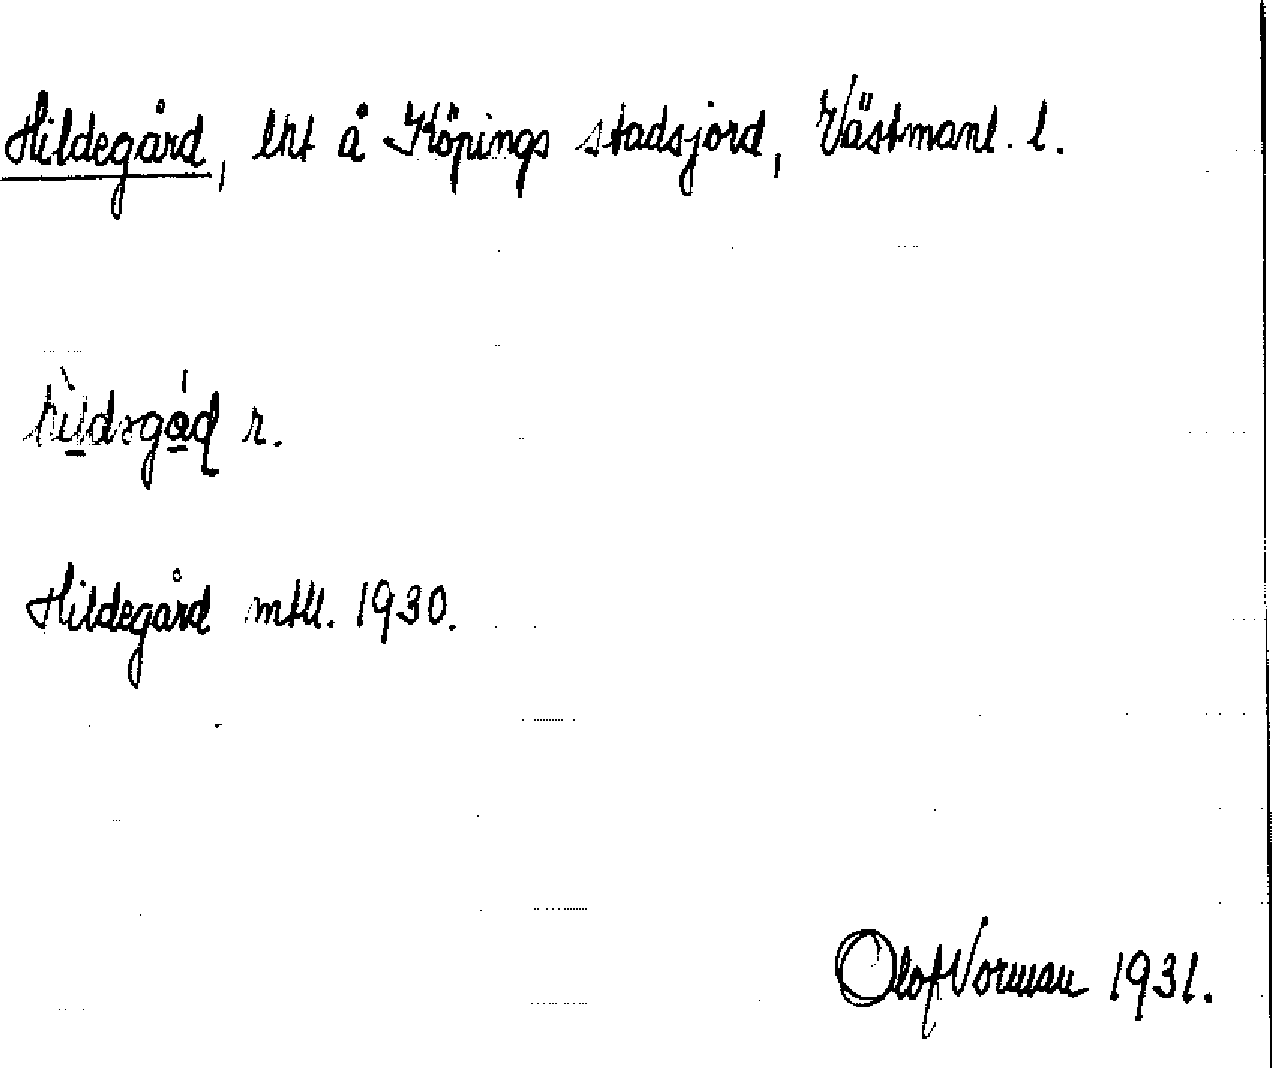 Hildegård, lht å Köpings stadsjord, Västmanl. l.
r.
Hildegård mtll. 1930.
Olof Vorman 1931.